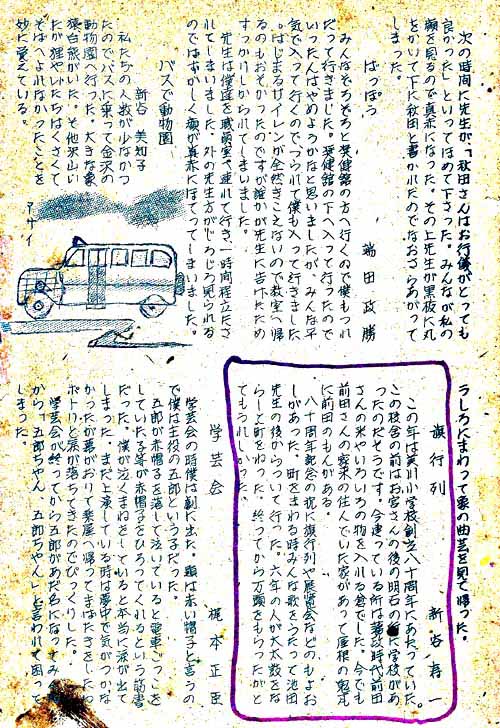 次の時間に先生が「秋田さんはお行儀がとっても
良かった」といってほめて下さった。みんなが私の
顔を見るので真赤になった。その上先生が黒板に丸
をかいて下に秋田と書かれたのでなおさらあがって
しまった。
はっぽう
端田政勝
みんなぞろぞろと保健舘の方へ行くので僕もつれ
だって行きました。保健舘の下へ入って行ったので
いったんはやめようかなと思いましたが、みんな平
気で入って行くので、つられて僕も入って行きました
。はじまるサイレンが全然きこえないので教室へ帰
るのもおそかったのですが誰かが先生に告げたため
すっかりしかられてしまいました。
先生は僕達を職員室へ連れて行き、一時間程立たさ
れてしまいました。外の先生方がじろじろ見られる
のではずかしく顔が真赤にほてってしまいました。
バスで動物園
新谷美知子
私たちの人数が少なかっ
たのでバスに乗って金沢の
動物園へ行った。大きな象
猿台熊がいた。その他沢山い
たが狸やしたちはくさくて
そばへよれなかったことを
妙に覚えている。
アサイ
うしろにまわって家の曲芸を見て帰った。
旗行列
新谷寿一
この年は美川小学校創立八十周年にあたっていた。
この校舎の前はお宮さんの後の明石の所に学校があ
ったのだそうです。今建っている所は藩政時代前田
さんの米やいろいろの物を入れる倉でした。今でも
前田さんの家来の住んでいた家があって屋根の鬼瓦
に前田のもんがある。
八十周年記念の祝に旗行列や展覧会などのもよお
しがあった。町をまわる時みんな歌をうたって池田
先生の後からついて行った。六年の人が大太数をな
らし、町をねった。終ってから万頭をもらったがと
てもうれしかった。
学芸会
梶本正臣
学芸会の時僕は劇に出た。題は赤い帽子と言うの
で僕は主役の五郎という子だった。
五郎が赤帽子を落して泣いていると電車ごっこを
していた子等が赤帽子をひろってくれるという筋書
だった。僕が泣くまねをしていると本当に涙が出て
しまった。まだ上演している時は夢中で気がつかな
かったが幕がおりて楽屋へ帰ってまばたきをしたら
ポトリと涙が落ちてきたのでびっくりした。
学芸会が終ってから五郎があだ名になってみんな
から「五郎ちゃん、五郎ちゃん」と言われて困って
しまった。